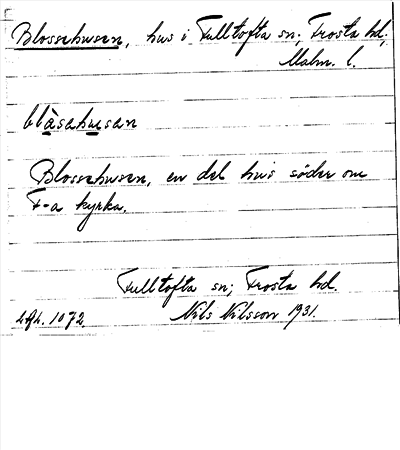 Blossehusen, hus i Fulltofta sn; Frosta hd,
Malm. l.
blåsahusan
Blossehusen, en del hus söder om
F-a kyrka.
Fulltofta sn; Frosta hd.
Nils Nilsson 1931.
1072.